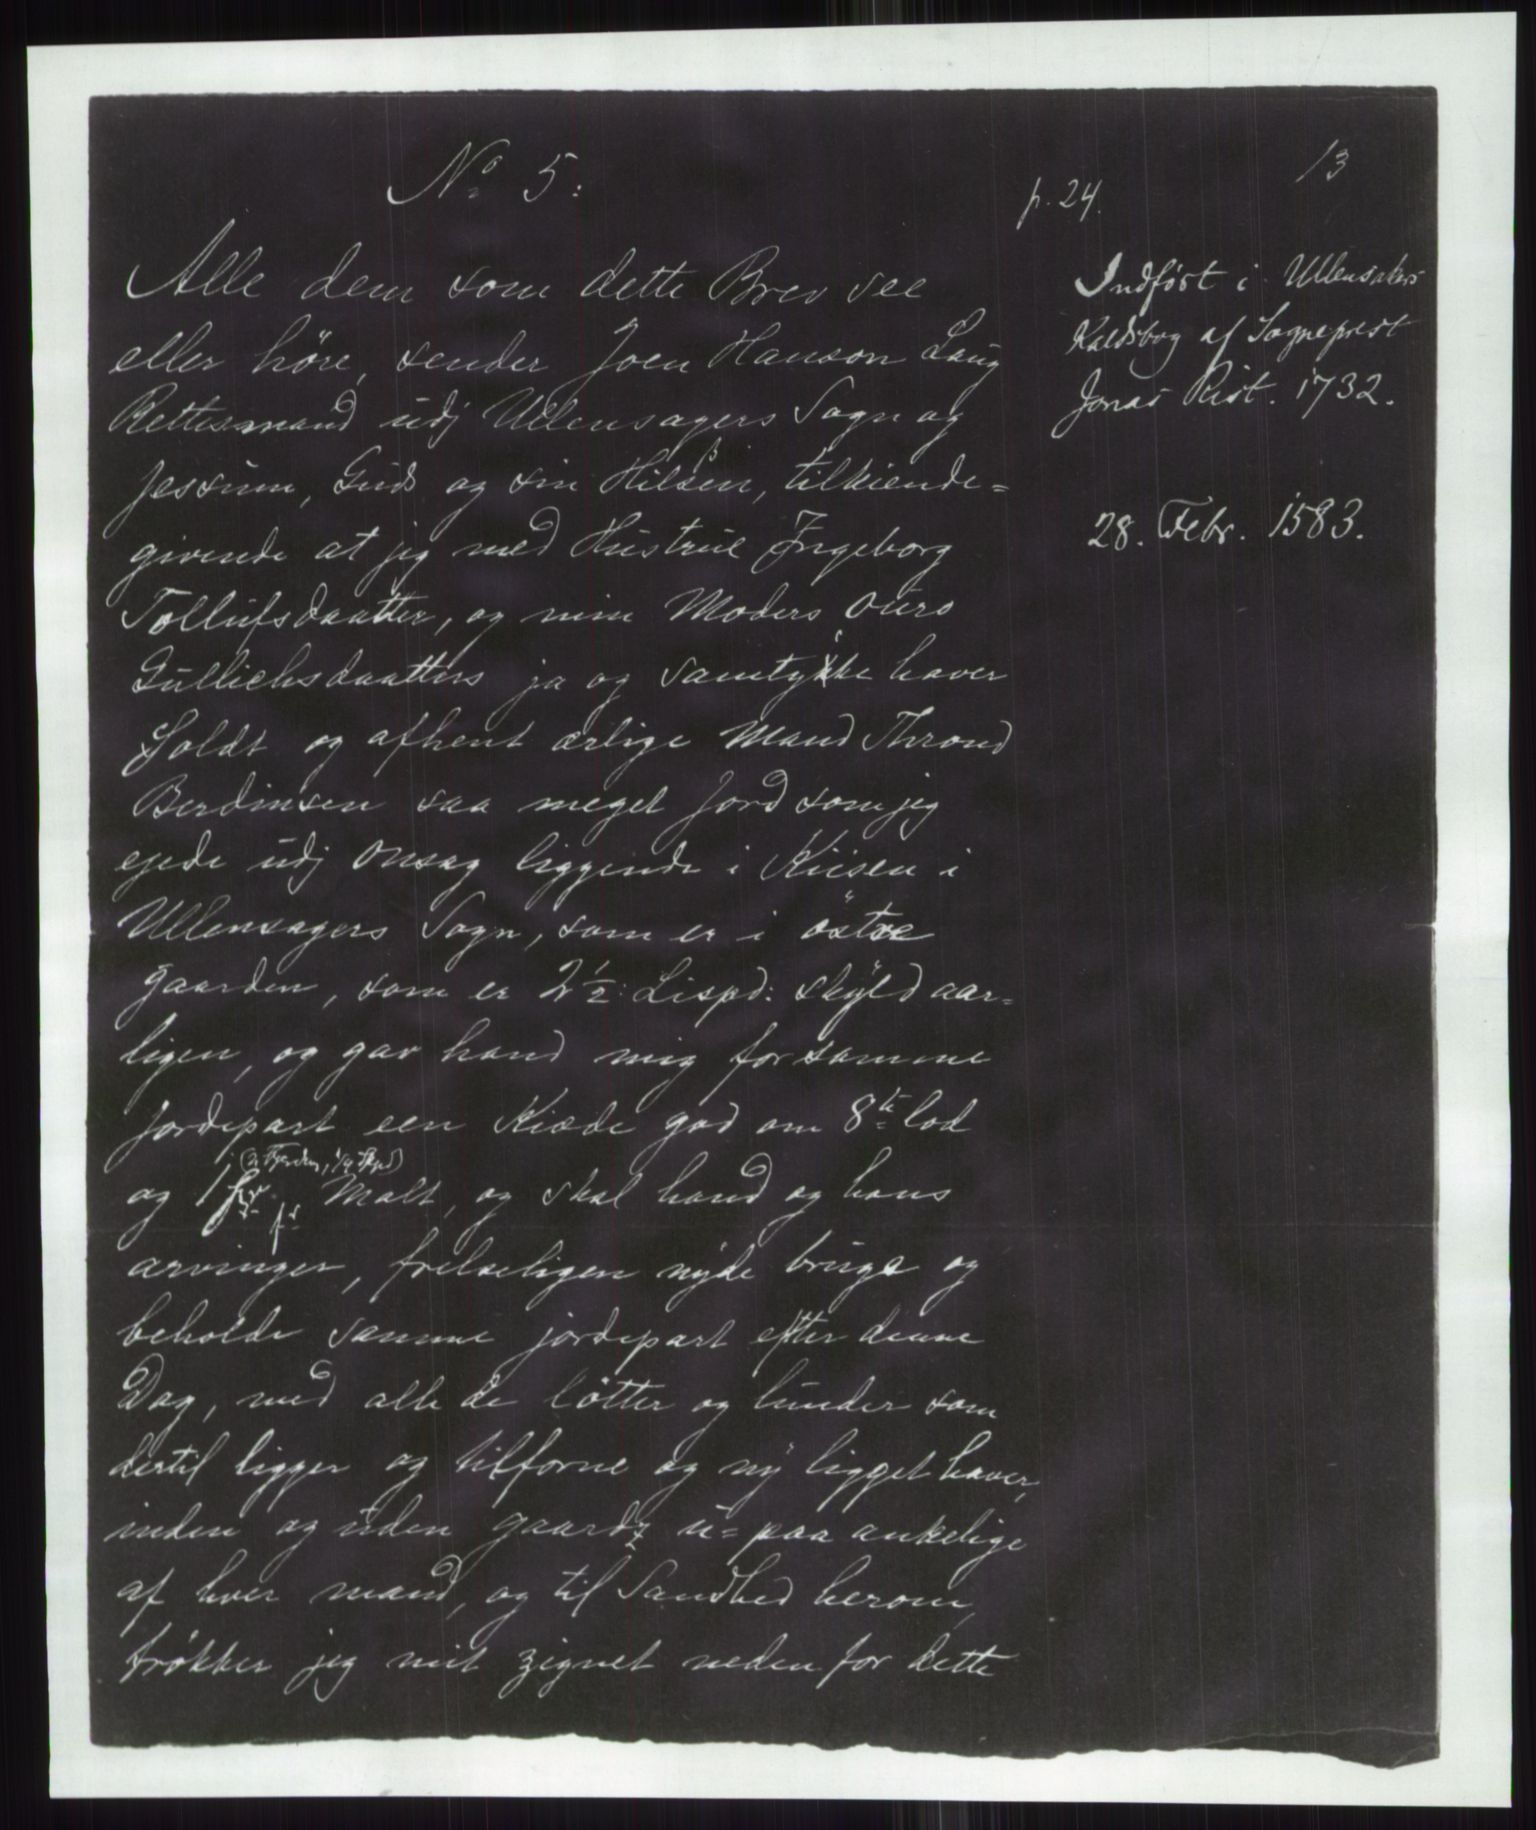 No 5:
p. 24.
13
Alle dem som dette Brev see
eller høre, sender Joen Hanson Laug
Rettismand udj Ullensagers Sogn og
Jessum, Guds og sin Hilsen, tilkiende=
givende at jeg med Hustrue Ingeborg
Tollufsdaatter, og min Moders Ouro
Gullichsdaatters ja og samtykke haver
Soldt og afhent ærlige Mand Thrond
Berdinsen saa meget Jord som jeg
ejede udj Onsag liggende i Kiisen i
Ullensagers Sogn, som er i östre
gaarden, som er 2½: Lispd: skyld aar=
ligen, og gav hand mig for samme
jordepart een Kiæde god om 8te lod
og 1 Malt, og skal hand og hans
arvinger, frelseligen nyde bruge og
beholde samme jordepart efter denne
Dag, med alle de lötter og lunder som
dertil ligger og tilforne og ny ligget haver,
inden og uden gaards u=paa ankelige
af hver mand, og til Sandhed herom,
trøkker jeg mit zignet neden for dette
Indført i Ullensakers
Kaldsbog af Sogneprest
Jonas Rist. 1732.
28. Febr. 1583.